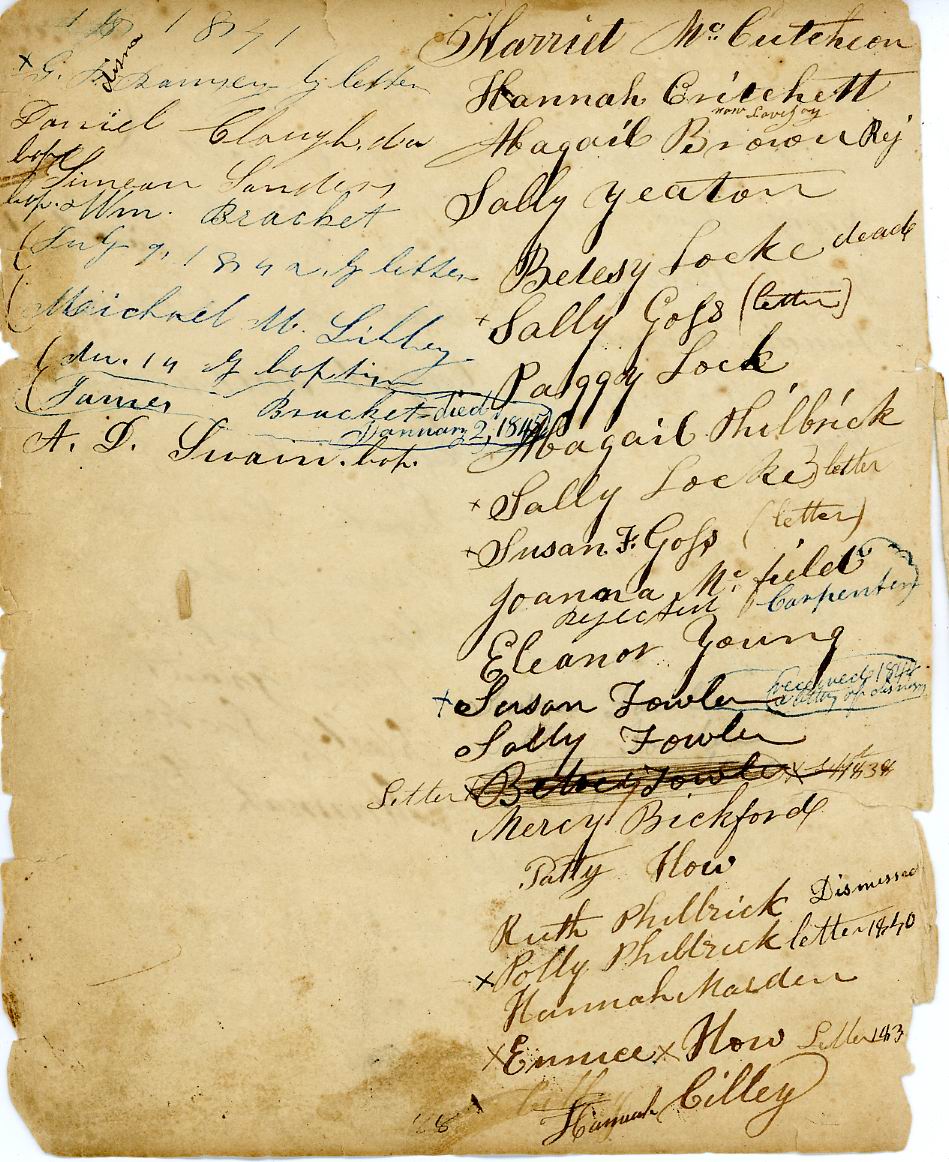 1841
x G. Ramsey by letter
Daniel Clough. do
bapt
Simean Sanders
bap. Wm. Bracket
July 9, 1842. by letter
Meichael M. Libbey
by baptism
James Bracket died
January 2, 184
A. D. Swain. bap.
Harriet Mc Cutcheon
Hannah Critchett
now Lovejoy
Abagail Brown Rej
Sally Yeaton
Betesy Locke dead
x Sally Goss (letter)
Paggy Lock
Abagail Philbrick
x Sally Locke letter
x Susan F. Goss (letter)
Joanna Mc field
rejected Carpenter
Eleanor Young
x Susan Fowler received 184
a letter of dismis
Sally Fowler
Letter x Betsey Fowler x 1838
Mercy Bickford
Patty How
Ruth Philbrick Dismissed
x Polly Philbrick letter 1840
Hannah Marden
x Eunice x How Letter 183
Hannah Cilley